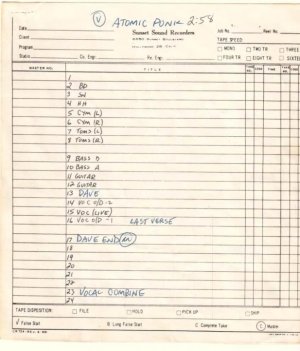 V ATOMIC PUNK 2:58
Date
Client
Program
Studio Co. Engr. Rx. Engr.
Sunset Sound Recorders
6650 Sunset Boulevard
Job No. Reel No.
TAPE SPEED
MONO TWO TR THREE
FOUR TR EIGHT TR SIXTEEN
MASTER NO. TITLE
1
2 BD
3 SN
4 HH
5 CYM (L)
6 CYM (R)
7 TOMS (L)
8 TOMS (R)
9 BASS D
10 BASS A
11 GUITAR
12 GUITAR
13 DAVE
14 VOC O/D-2
15 VOC (LIVE)
16 VOC O/D-1 LAST VERSE
17 DAVE END
18
19
20
21
22
23 VOCAL COMBINE
24
TAPE DISPOSITION: FILE HOLD PICK UP SHIP
False Start B Long False Start C Complete Take Master